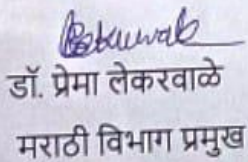 डॉ. प्रेमा लेकरवाळे
मराठी विभाग प्रमुख